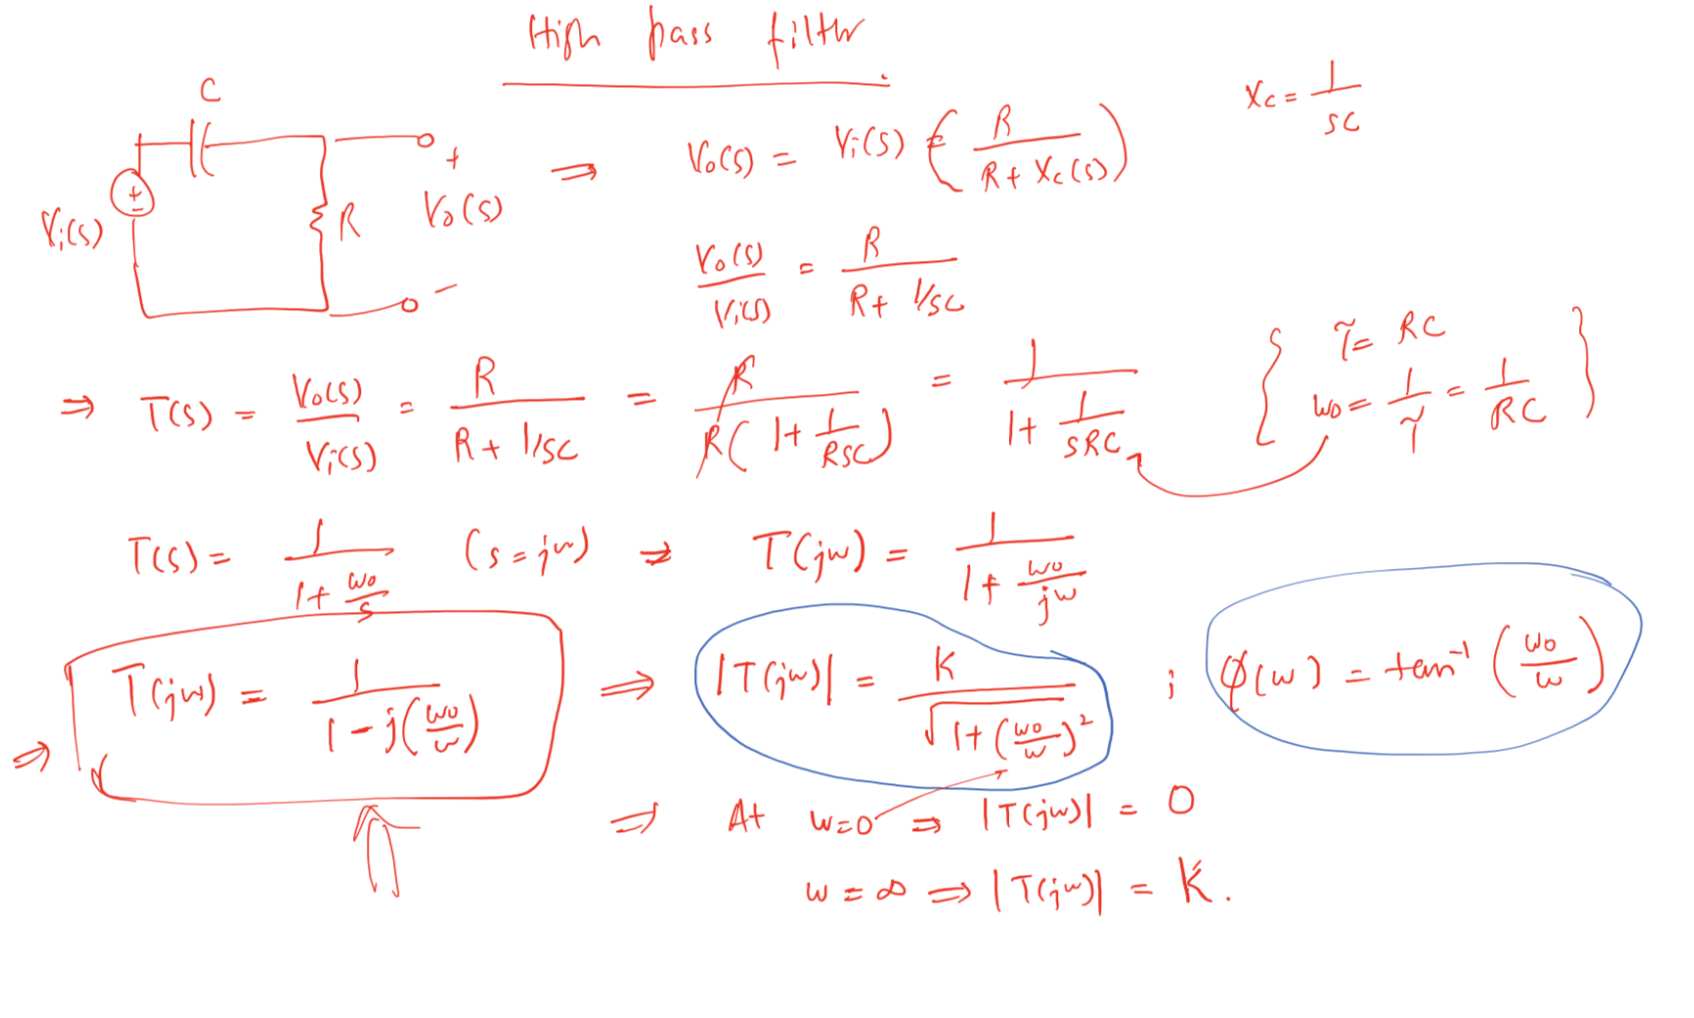 High pass filter
C
Vi(s)
R
+
Vo(s)
-
⇒ Vo(s) = Vi(s) (R / (R + Xc(s)))
Xc = 1/sC
Vo(s)/Vi(s) = R / (R + 1/sC)
⇒ T(s) = Vo(s)/Vi(s) = R / (R + 1/sC) = R / (R(1 + 1/RSC)) = 1 / (1 + 1/sRC)
{ τ = RC
ω0 = 1/τ = 1/RC }
T(s) = 1 / (1 + ω0/s) (s = jω) ⇒ T(jω) = 1 / (1 + ω0/jω)
⇒ T(jω) = 1 / (1 - j(ω0/ω)) ⇒ |T(jω)| = K / √(1 + (ω0/ω)²) ; φ(ω) = tan⁻¹(ω0/ω)
⇒ At ω=0 ⇒ |T(jω)| = 0
ω = ∞ ⇒ |T(jω)| = K.